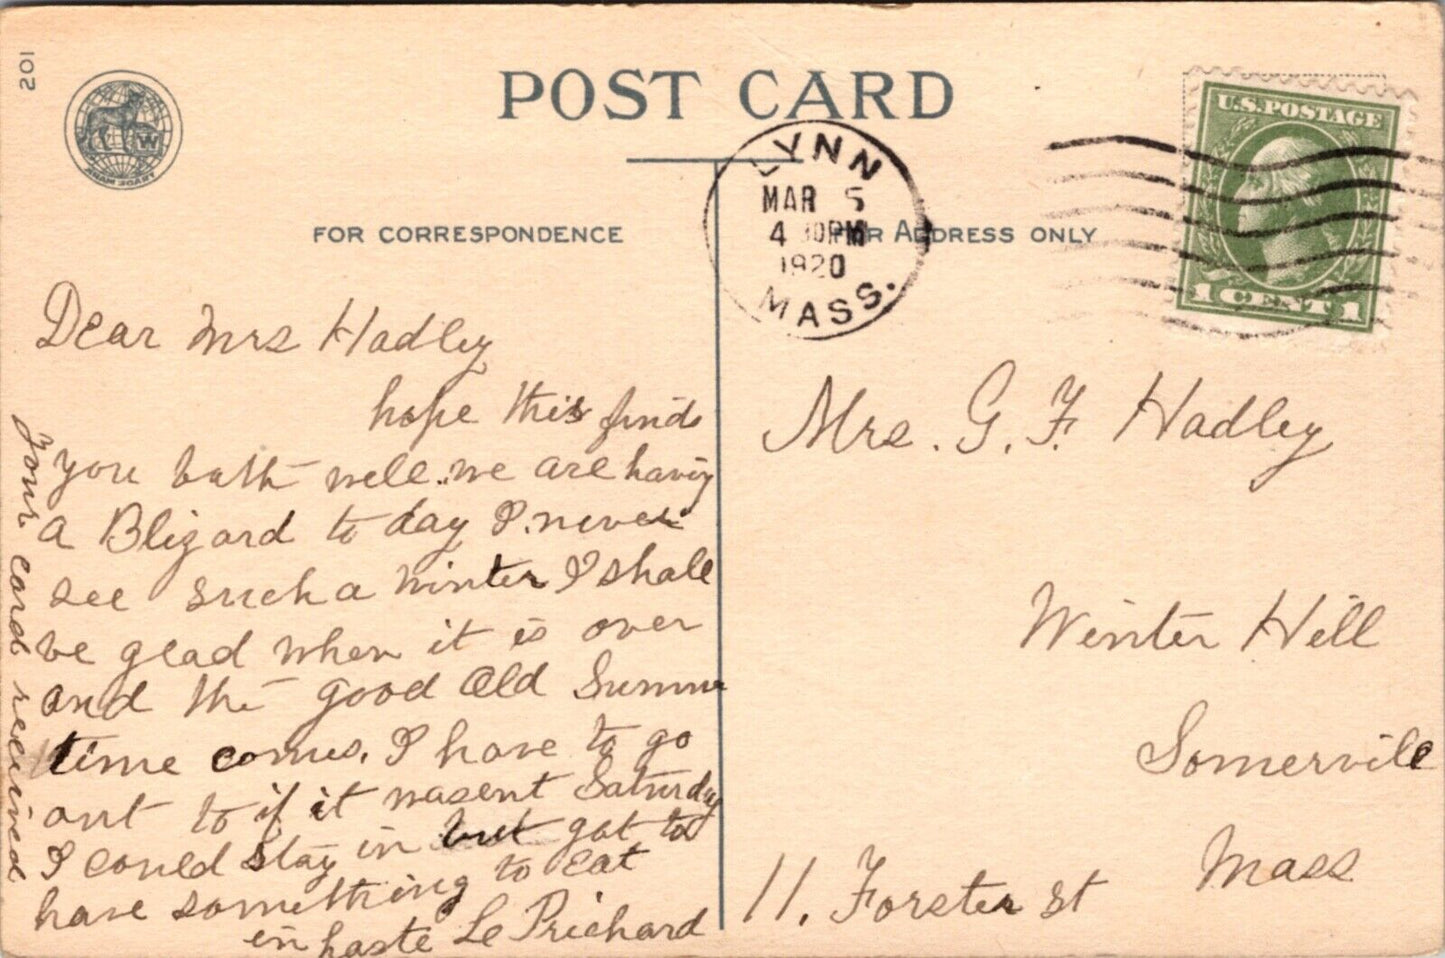 201
W
POST CARD
FOR CORRESPONDENCE
FOR ADDRESS ONLY
LYNN
MAR 5
4 30PM
1920
MASS.
U.S. POSTAGE
1 CENT 1
Dear Mrs Hadley
hope this finds
you bath well. we are having
a Blizard to day I never
see such a Winter I shall
be glad when it is over
and the good Old Summer
time comes. I have to go
out to if it wasent Saturday
I could Stay in but got to
have something to eat
in haste Le Prichard
Your card received
Mrs. G. F. Hadley
Winter Hill
Somerville
Mass
11. Forster St